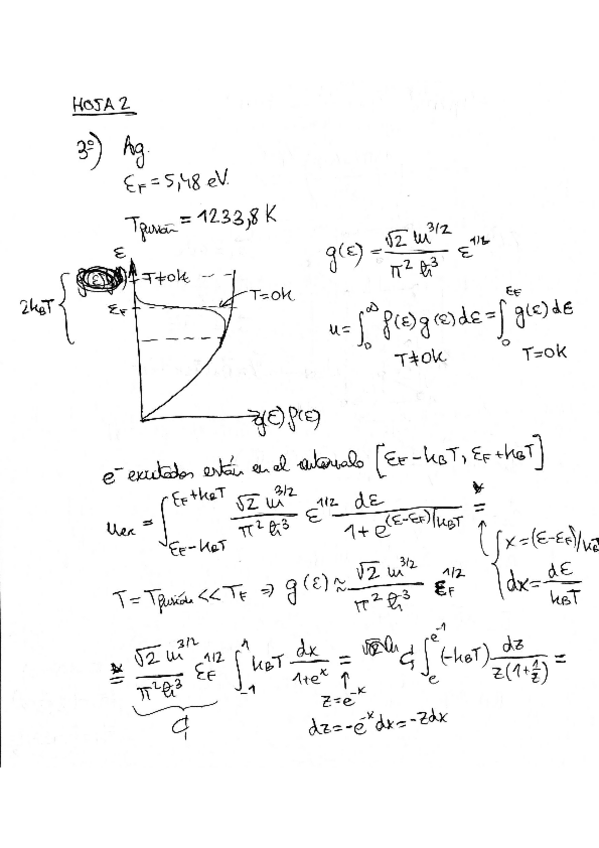 HOJA 2
3º) Ag.
E_F = 5,48 eV.
T_fusión = 1233,8 K
g(ε) = √2 m^{3/2} / π² ħ³ ε^{1/2}
ε
T≠0K
T=0K
2k_BT
ε_F
n = ∫_0^∞ f(ε) g(ε) dε = ∫_0^{ε_F} g(ε) dε
T≠0K
T=0K
g(ε) f(ε)
e⁻ excitados están en el intervalo [ε_F - k_BT, ε_F + k_BT]
n_ex = ∫_{ε_F - k_BT}^{ε_F + k_BT} √2 m^{3/2} / π² ħ³ ε^{1/2} dε / 1 + e^{(ε-ε_F)/k_BT} =*
{ x = (ε-ε_F)/k_BT
dx = dε / k_BT
T = T_fusión << T_F ⇒ g(ε) ≈ √2 m^{3/2} / π² ħ³ ε_F^{1/2}
*= √2 m^{3/2} / π² ħ³ ε_F^{1/2} ∫_{-1}^{1} k_BT dx / 1+e^x = C₁ ∫_e^{e^{-1}} (-k_BT) dz / z(1+1/z) =
C₁
z = e^{-x}
dz = -e^{-x} dx = -z dx